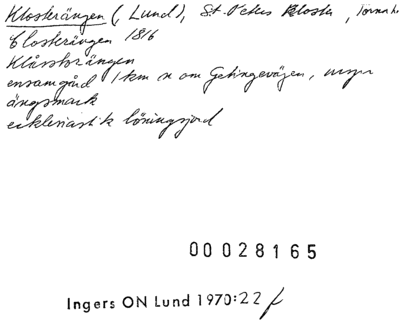 Klosterängen (, Lund), St. Peters Kloster, Torna h.
Closterängen 1816
Klåsshrängen
ensamgård 1 km n om Getingevägen,
ängsmark
ecklesiastik löningsjord
00028165
Ingers ON Lund 1970:22 f